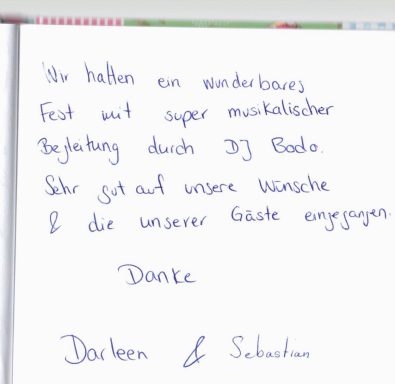 Wir hatten ein wunderbares
Fest mit super musikalischer
Begleitung durch DJ Bodo.
Sehr gut auf unsere Wünsche
& die unserer Gäste eingegangen.
Danke
Darleen & Sebastian